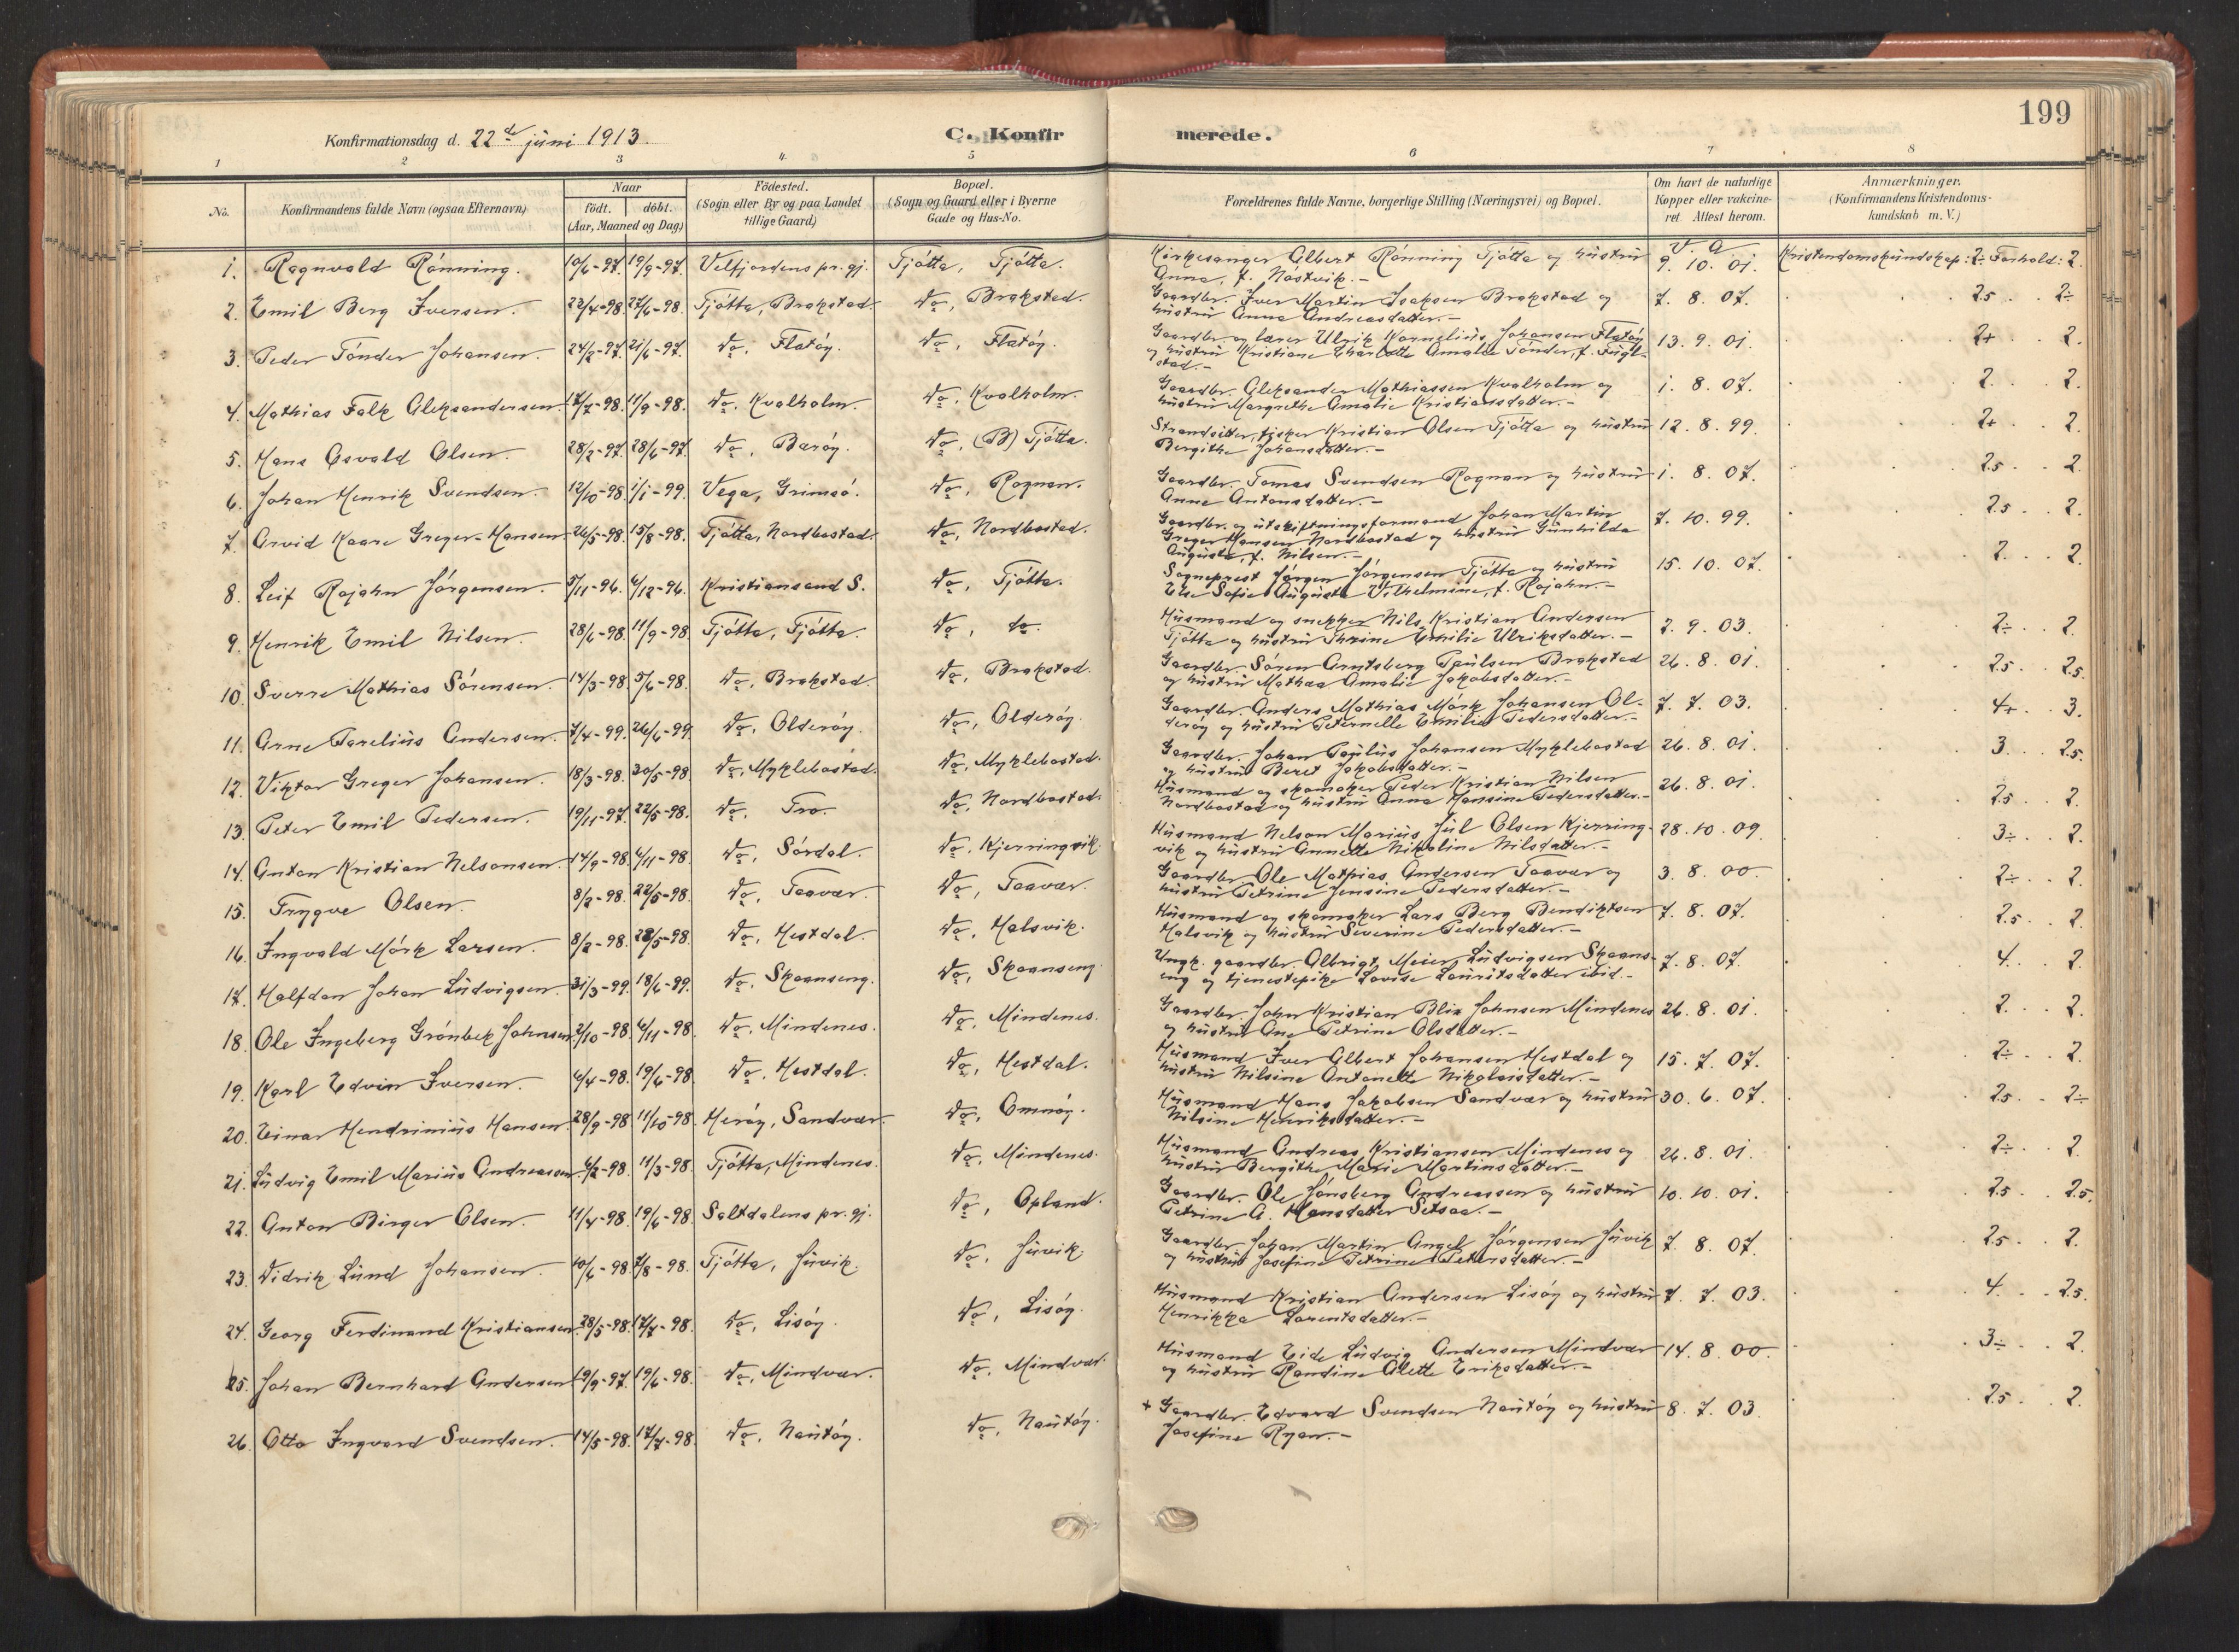 199
Konfirmationsdag d. 22de juni 1913.
C. Konfirmerede.
1 2 3 4 5 6 7 8
No. Konfirmandens fulde Navn (ogsaa Efternavn)
Naar
födt. döbt.
(Aar, Maaned og Dag)
Födested.
(Sogn eller By og paa Landet
tillige Gaard)
Bopæl.
(Sogn og Gaard eller i Byerne
Gade og Hus-No.
Forældrenes fulde Navne, borgerlige Stilling (Næringsvei) og Bopæl.
Om havt de naturlige
Kopper eller vakcine-
ret. Attest herom.
Anmærkninger.
(Konfirmandens Kristendoms-
kundskab m. V.)
1. Ragnvald Rönning. 10/6-97. 19/9-97. Velfjordens pr.gj. Tjötta, Tjötta. Kirkesanger Albert Rönning Tjötta og hustru V. a 9. 10. 01. Kristendomskundskap: 2÷ Forhold: 2.
Anna, f. Nästvik.-
2. Emil Berg Iversen. 23/4-98. 27/6-98. Tjötta, Brakstad. Do, Brakstad. Gaardbr. Iver Martin Isaksen Brakstad og 7. 8. 07. 2.5 2÷
hustru Anna Andreasdatter.-
3. Peder Tönder Johansen. 24/2-97. 21/6-97. Do, Flatöy. Do, Flatöy. Gaardbr. og lærer Ulrik Kornelius Johansen Flatöy 13. 9. 01. 2+ 2.
og hustru Kristiane Charlotte Amalie Tönder, f. Fugl-
stad.-
4. Mathias Falk Aleksandersen. 17/7-98. 11/9-98. Do, Kvalholm. Do, Kvalholm. Gaardbr. Aleksander Mathiassen Kvalholm og 1. 8. 07. 2. 2.
hustru Margrethe Amalie Kristiansdatter.-
5. Hans Osvald Olsen. 28/2-97. 28/6-97. Do, Baröy. Do, (B) Tjötta. Strandsitter, fisker Kristian Olsen Tjötta og hustru 12. 8. 99. 2+ 2.
Bergithe Johansdatter.-
6. Johan Henrik Svendsen. 12/10-98. 1/1-99. Vega, Grimsö. Do, Rognan. Gaardbr. Tomas Svendsen Rognan og hustru 1. 8. 07. 2.5 2.
Anne Antonsdatter.-
7. Arvid Kaare Greger-Hansen. 26/5-98. 15/8-98. Tjötta, Nordbostad. Do, Nordbostad. Gaardbr. og utskiftningsformand Johan Martin 7. 10. 99. 2.5 2.
Greger Hansen Nordbostad og hustru Gunhilda
Augusta, f. Nilsen.-
8. Leif Rojahn Jörgensen. 5/11-96. 6/12-96. Kristiansand S. Do, Tjötta. Sogneprest Jörgen Jörgensen Tjötta og hustru 15. 10. 07. 2. 2.
Else Sofie Augusta Vilhelmine, f. Rojahn.-
9. Henrik Emil Nilsen. 28/6-98. 11/9-98. Tjötta, Tjötta. Do, do. Husmand og snekker Nils Kristian Andersen 2. 9. 03. 2÷ 2.
Tjötta og hustru Thrine Emilie Ulriksdatter.-
10. Sverre Mathias Sörensen. 14/3-98. 5/6-98. Do, Brakstad. Do, Brakstad. Gaardbr. Sören Arntsberg Paulsen Brakstad 26. 8. 01. 2.5 2.5.
og hustru Mathea Amalie Jakobsdatter.-
11. Arne Parelius Andersen. 7/4-99. 26/6-99. Do, Olderöy. Do, Olderöy. Gaardbr. Anders Mathias Mörk Johansen Ol- 7. 7. 03. 4+ 3.
deröy og hustru Peternelle Emilie Pedersdatter.-
12. Viktor Greger Johansen. 18/3-98. 30/5-98. Do, Myklebostad. Do, Myklebostad. Gaardbr. Johan Paulus Johansen Myklebostad 26. 8. 01. 3. 2.5.
og hustru Beret Jakobsdatter.-
13. Peter Emil Pedersen. 19/11-97. 22/5-98. Do, Tro. Do, Nordbostad. Husmand og skomaker Peder Kristian Nilsen 26. 8. 01. 2.5 2.
Nordbostad og hustru Anna Hansine Pedersdatter.-
14. Anton Kristian Nelsonsen. 14/9-98. 6/11-98. Do, Sördal. Do, Kjerringvik. Husmand Nelson Marius Jul Olsen Kjerring- 28. 10. 09. 3÷ 2.
vik og hustru Annette Nikoline Nilsdatter.-
15. Trygve Olsen. 8/2-98. 22/5-98. Do, Taavær. Do, Taavær. Gaardbr. Ole Mathias Andersen Taavær og 3. 8. 00. 2÷ 2.
hustru Petrine Jensine Pedersdatter.-
16. Ingvald Mörk Larsen. 8/2-98. 28/5-98. Do, Hestdal. Do, Halsvik. Husmand og skomaker Lars Berg Bendiktsen 7. 8. 07. 2.5 2.
Halsvik og hustru Severine Pedersdatter.-
17. Halfdan Johan Ludvigsen. 31/3-99. 18/6-99. Do, Skaanseng. Do, Skaanseng. Ungk. gaardbr. Albrigt Meier Ludvigsen Skaans- 7. 8. 07. 4. 2.
eng og tjenestepike Lovise Lauritsdatter ibid.-
18. Ole Ingeberg Grönbek Johnsen. 2/10-98. 6/11-98. Do, Mindenes. Do, Mindenes. Gaardbr. John Kristian Blix Johnsen Mindenes 26. 8. 01. 2. 2.
og hustru Ane Petrine Olsdatter.-
19. Karl Edvin Iversen. 6/4-98. 19/6-98. Do, Hestdal. Do, Hestdal. Husmand Iver Albert Johansen Hestdal og 15. 7. 07. 2÷ 2.
hustru Nilsine Antonette Nikolaisdatter.-
20. Einar Hendrinius Hansen. 28/9-98. 11/10-98. Heröy, Sandvær. Do, Omnöy. Husmand Hans Jakobsen Sandvær og hustru 30. 6. 07. 2.5 2÷
Nilsine Henriksdatter.-
21. Ludvig Emil Marius Andreassen. 6/2-98. 11/3-98. Tjötta, Mindenes. Do, Mindenes. Husmand Andreas Kristiansen Mindenes og 26. 8. 01. 2÷ 2.
hustru Bergithe Marie Martinsdatter.-
22. Anton Birger Olsen. 11/4-98. 19/6-98. Saltdalens pr.gj. Do, Opland. Gaardbr. Ole Jönsberg Andreassen og hustru 10. 10. 01. 2.5 2.5.
Petrine A. Hansdatter Setsaa.-
23. Didrik Lund Johansen. 10/6-98. 7/8-98. Tjötta, Juvik. Do, Juvik. Gaardbr. Johan Martin Angel Jörgensen Juvik 7. 8. 07. 2.5 2.
og hustru Josefine Petrine Petersdatter.-
24. Georg Ferdinand Kristiansen. 28/5-98. 17/7-98. Do, Lisöy. Do, Lisöy. Husmand Kristian Andersen Lisöy og hustru 7. 7. 03. 4. 2.5.
Henrikka Larentsdatter.-
25. Johan Bernhard Andersen. 19/9-97. 19/6-98. Do, Mindvær. Do, Mindvær. Husmand Eide Ludvig Andersen Mindvær 14. 8. 00. 3÷ 2.
og hustru Randine Alette Eriksdatter.-
26. Otto Ingvard Svendsen. 14/5-98. 17/7-98. Do, Nautöy. Do, Nautöy. + Gaardbr. Edvard Svendsen Nautöy og hustru 8. 7. 03. 2.5 2.
Josefine Ryan.-